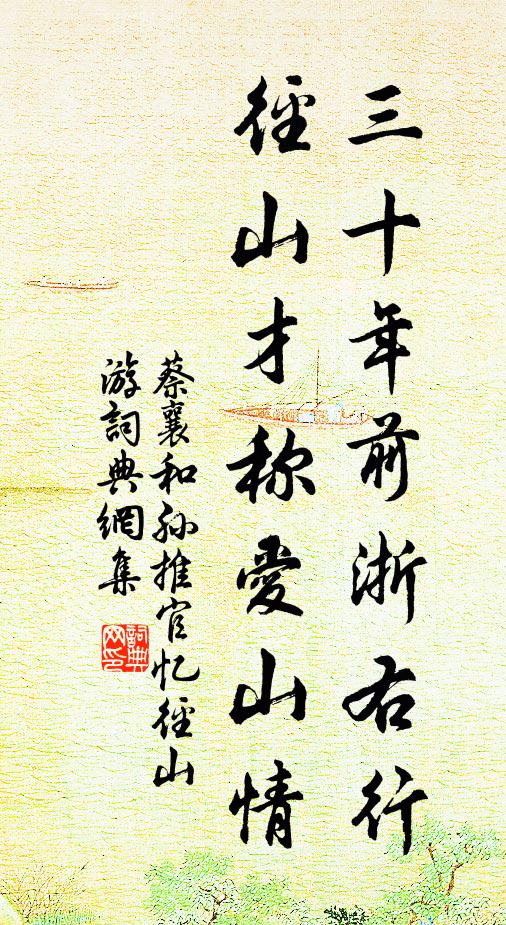 三十年前浙右行
徑山才称愛山情
蔡襄和孙推官忆徑山
游詞典網集
詞典
网印